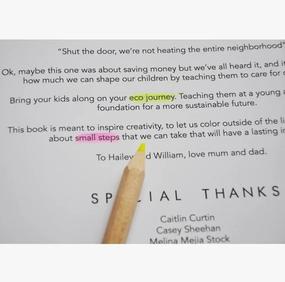 "Shut the door, we're not heating the entire neighborhood"
Ok, maybe this one was about saving money but we've all heard it, and it
how much we can shape our children by teaching them to care for
Bring your kids along on your eco journey. Teaching them at a young
foundation for a more sustainable future.
This book is meant to inspire creativity, to let us color outside of the
about small steps that we can take that will have a lasting
To Hailey William, love mum and dad.
THANKS
Caitlin Curtin
Casey Sheehan
Melina Mejia Stock